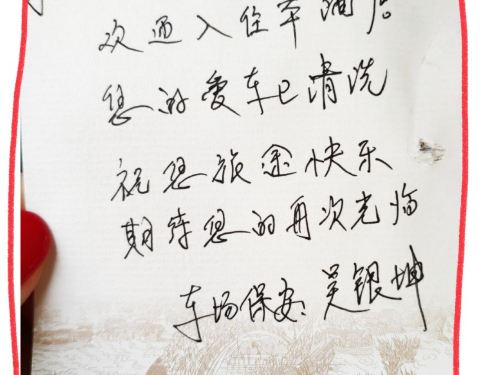 欢迎入住本酒店
您的爱车已清洗
祝您旅途快乐
期待您的再次光临
车场保安：吴银坤